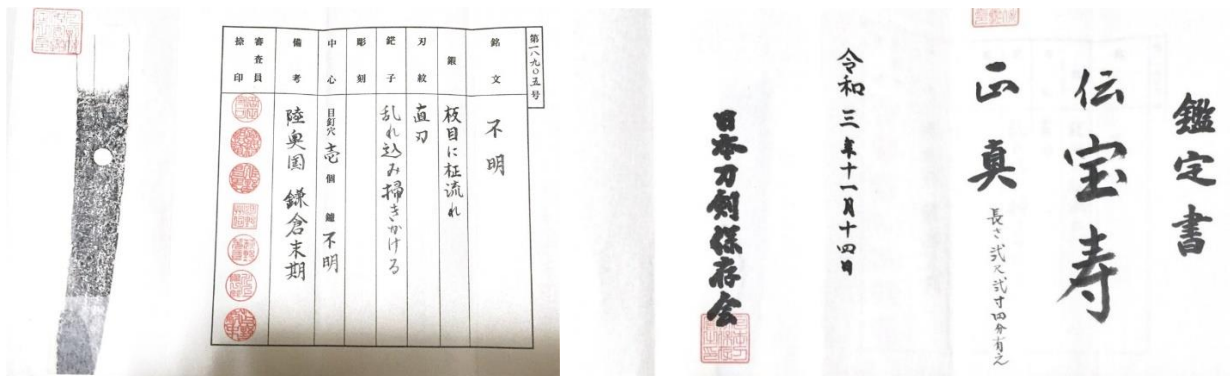 鑑定書
伝宝寿
正真
長さ弐尺弐寸四分有之
令和三年十一月十四日
日本刀剣保存会
第一八九〇五号
銘文 不明
鍛 板目に柾流れ
刃紋 直刃
鋩子 乱れ込み掃きかける
彫刻
中心 目釘穴壱個 鑢不明
備考 陸奥国 鎌倉末期
審査員 捺印